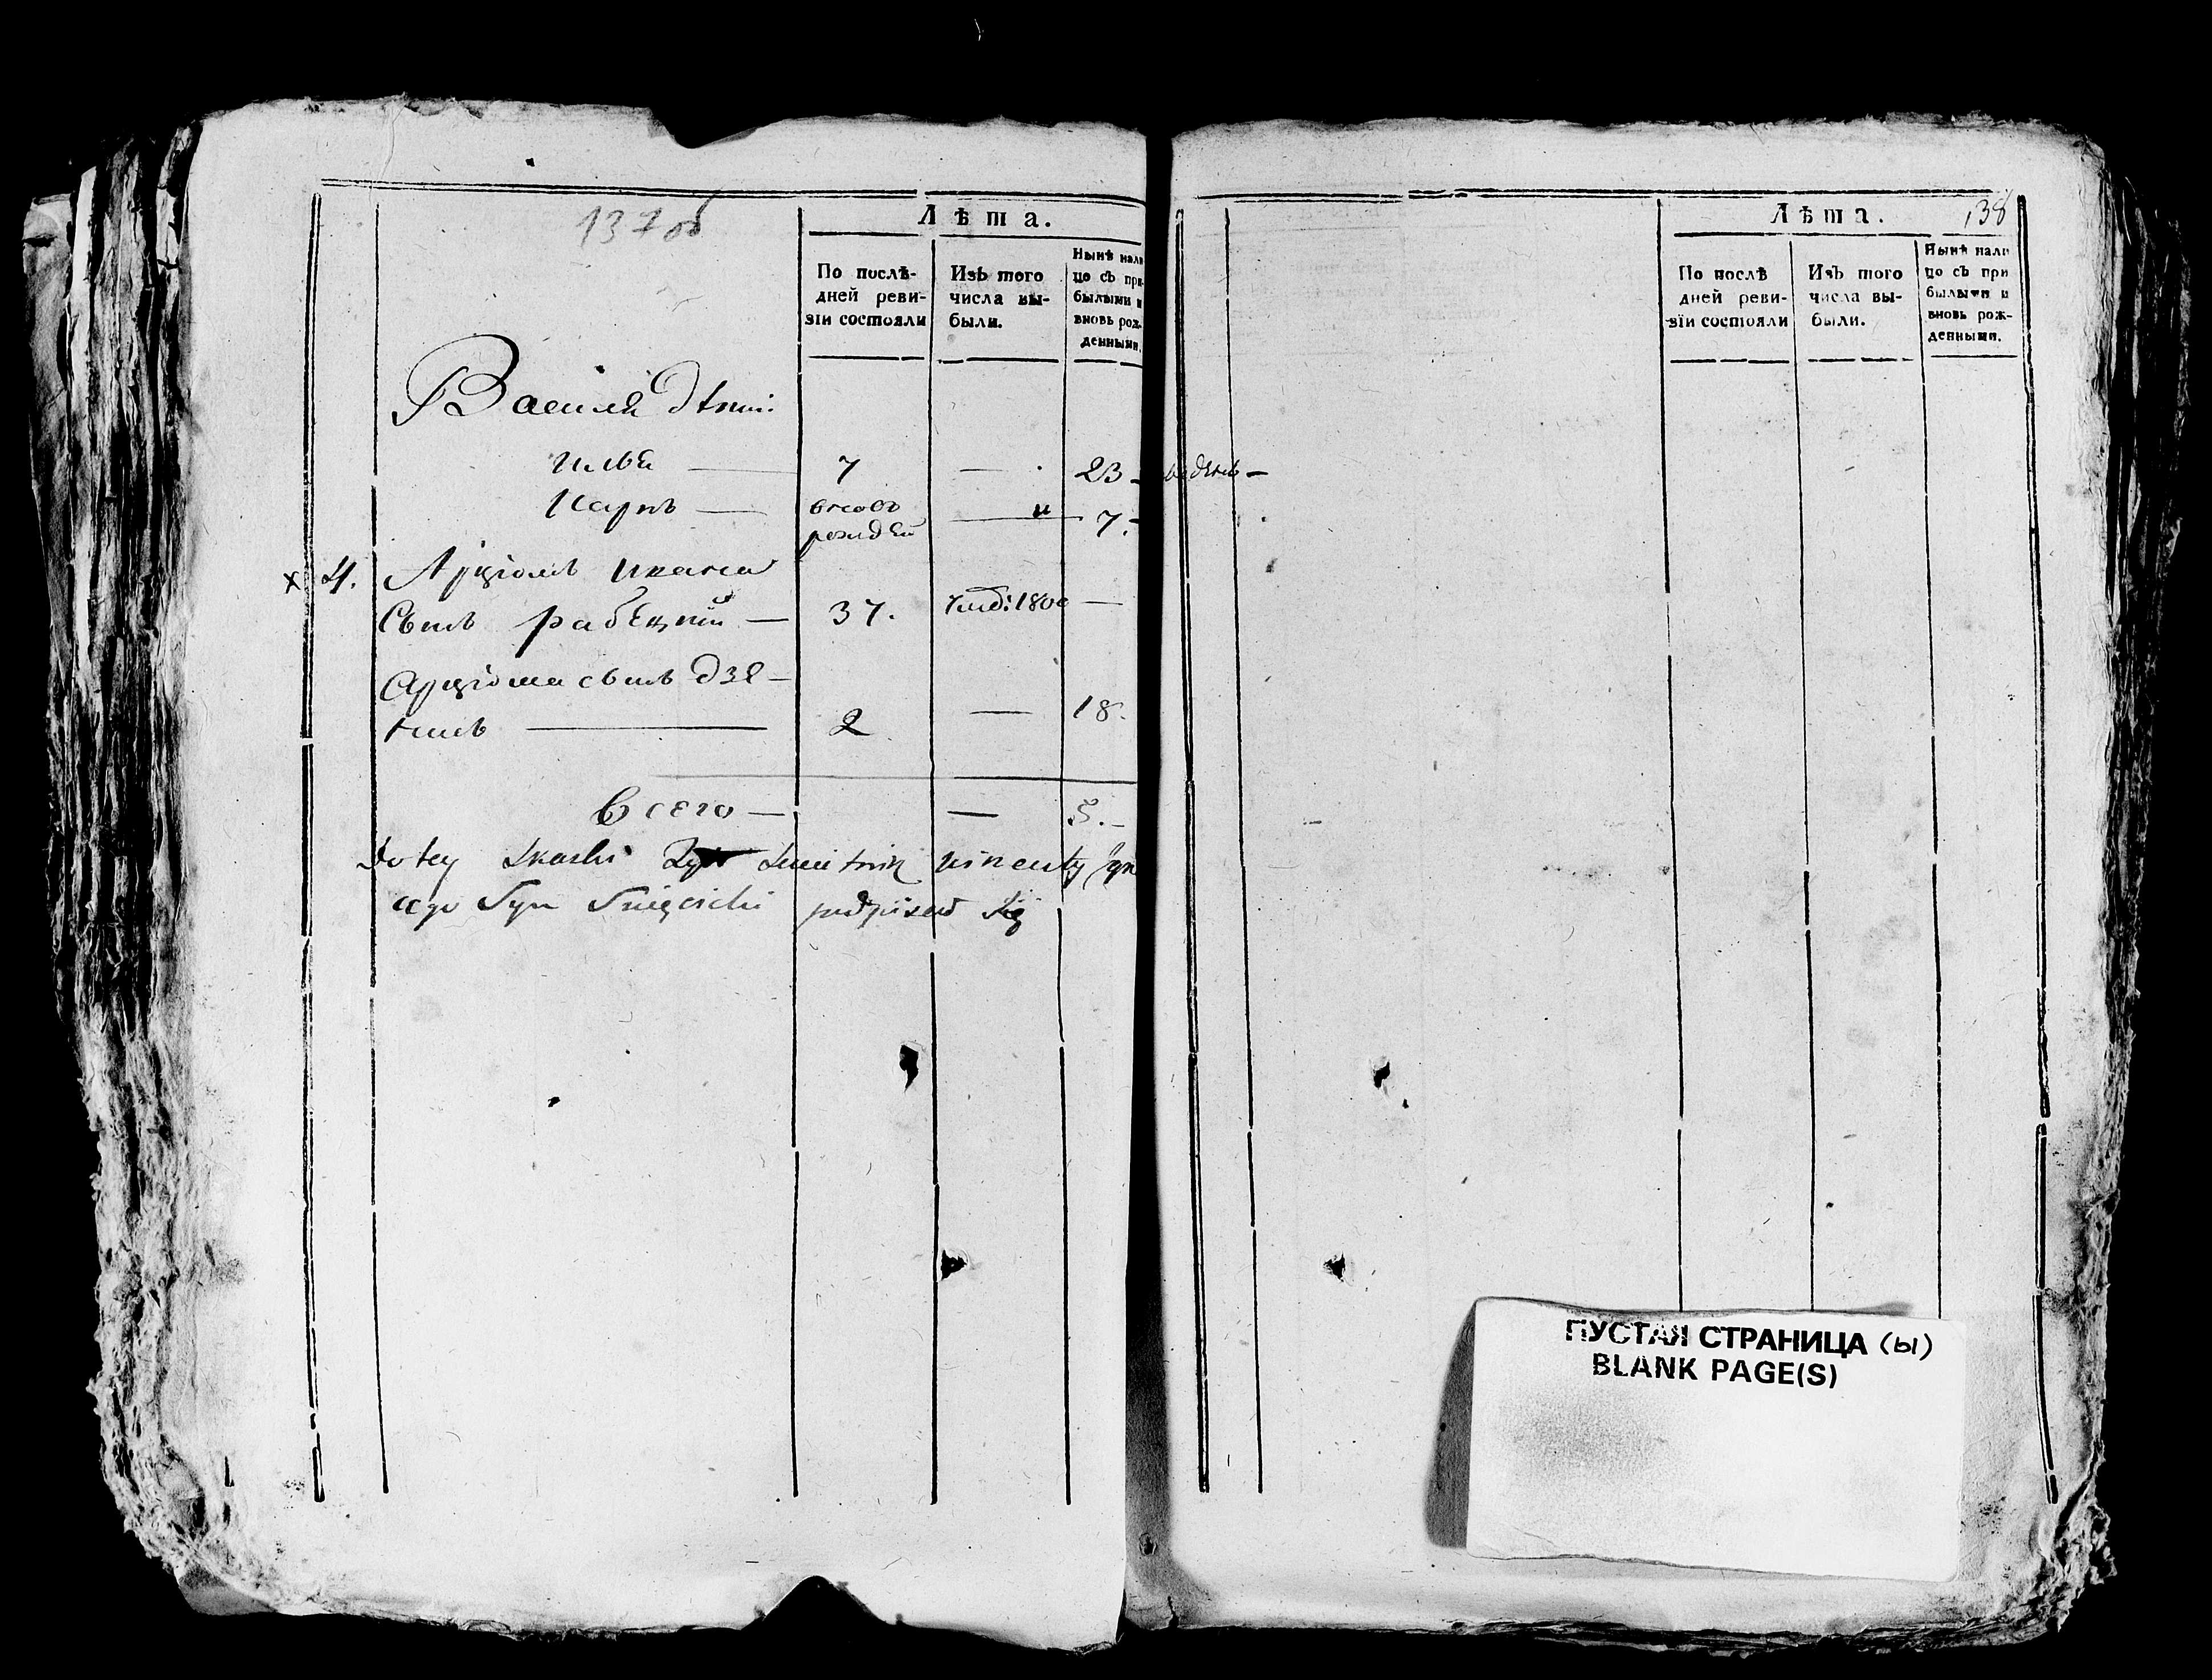 137 об
Лѣта.
По послѣ-
дней реви-
зїи состояли
Изъ того
числа вы-
были.
Нынѣ нали
цо съ при
былыми и
вновь рож-
денными.
Василя дѣти:
Илья — 7 — 23 —
Карпъ — вновъ
рожден — 7. —
х 4. Арцiомъ Ивана
Сынъ — 37. 1800 —
Арцiома сынъ
2 — 18.
Всего — — 5. —
Do tey Skaski
Syn podpisał się
138
Лѣта.
По послѣ
дней реви-
зїи состояли
Изъ того
числа вы-
были.
Нынѣ нали
цо съ при
былыми и
вновь рож-
денными.
ПУСТАЯ СТРАНИЦА (Ы)
BLANK PAGE(S)